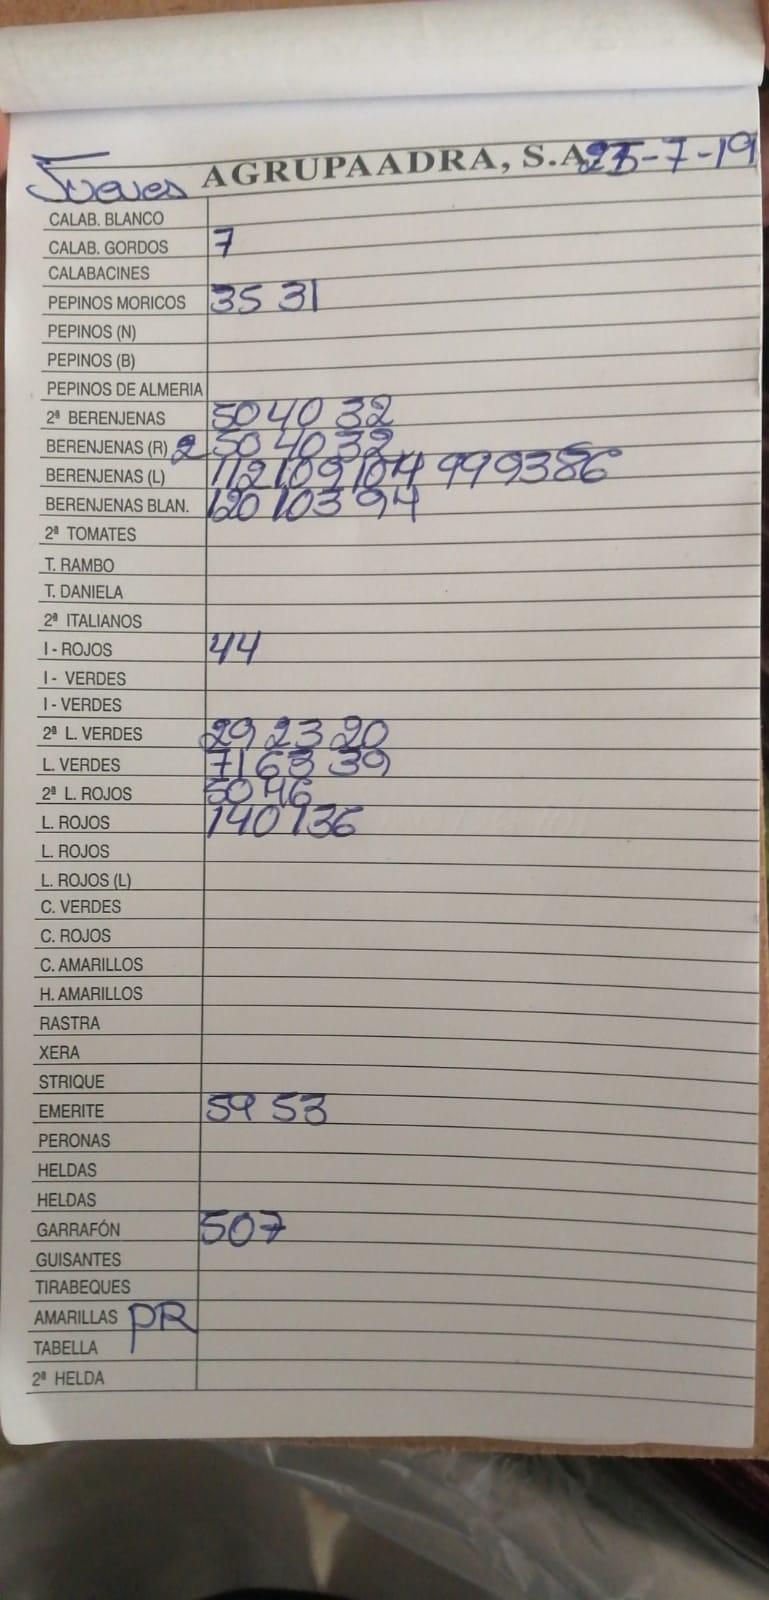 Jueves AGRUPAADRA, S.A. 25-7-19
CALAB. BLANCO
CALAB. GORDOS 7
CALABACINES
PEPINOS MORICOS 35 31
PEPINOS (N)
PEPINOS (B)
PEPINOS DE ALMERIA
2ª BERENJENAS 50 40 32
BERENJENAS (R) 2 50 40 32
BERENJENAS (L) 112 109 104 99 93 86
BERENJENAS BLAN. 120 103 94
2ª TOMATES
T. RAMBO
T. DANIELA
2ª ITALIANOS
I - ROJOS 44
I - VERDES
I - VERDES
2ª L. VERDES 29 23 20
L. VERDES 71 63 39
2ª L. ROJOS 50 46
L. ROJOS 140 136
L. ROJOS
L. ROJOS (L)
C. VERDES
C. ROJOS
C. AMARILLOS
H. AMARILLOS
RASTRA
XERA
STRIQUE
EMERITE 59 53
PERONAS
HELDAS
HELDAS
GARRAFÓN 507
GUISANTES
TIRABEQUES
AMARILLAS PR
TABELLA
2ª HELDA